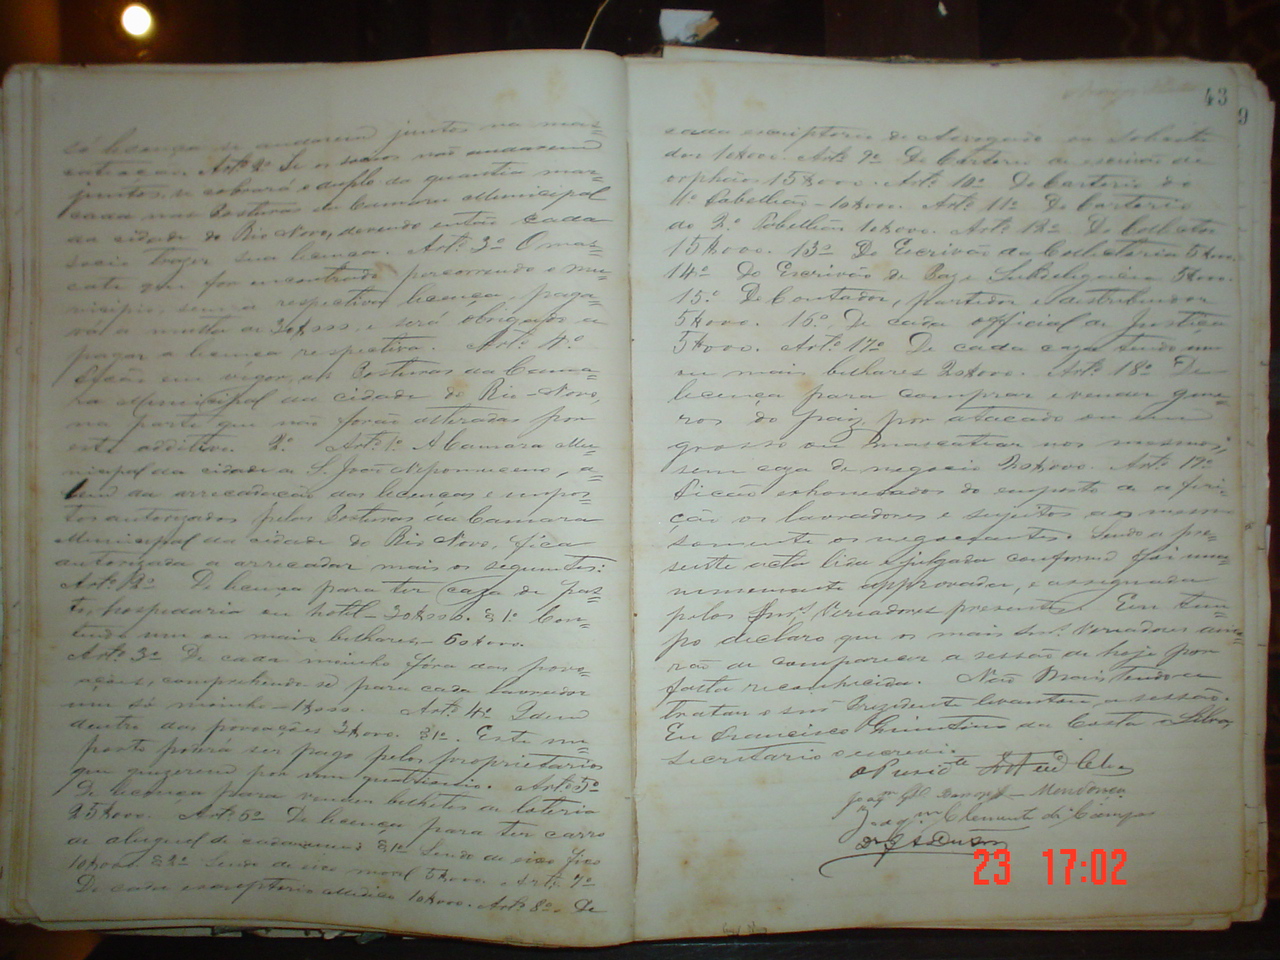 só licença se andarem juntos na mas=
cateação. Artº 2º Se os socios não andarem
juntos, se cobrará o duplo da quantia mar=
cada nas Posturas da Camara Municipal
da cidade do Rio Novo, devendo então cada
socio trazer sua licença. Artº 3º O mas=
cate que for encontrado percorrendo o mu=
nicipio, sem a respectiva licença, paga=
rá a multa de 30$000, e será obrigado a
pagar a licença respectiva. Artº 4º
Ficão em vigor, as Posturas da Cama=
ra Municipal da cidade do Rio-Novo,
na parte que não forão alteradas por
este additivo. 2º Artº 1º A Camara Mu=
nicipal da cidade de S. João Nepomuceno, a=
lem da arrecadação das licenças e impos=
tos autorizados pelas Posturas da Camara
Municipal da cidade do Rio Novo, fica
autorizada a arrecadar mais os seguintes:
Artº 2º De licença para ter caza de pas=
to, hospedaria ou hotel - 30$000. § 1º Con=
tendo um ou mais bilhares - 60$000.
Artº 3º De cada moinho fóra das povo=
ações, comprehende-se para cada lavrador
um só moinho - 1$000. Artº 4º Idem
dentro das povoações 2$000. § 1º. Este im=
posto poderá ser pago pelos proprietarios
que quizerem por um quatrienio. Artº 5º
De licença para vender bilhetes de loteria
25$000. Artº 6º De licença para ter carro
de aluguel de § 1º Sendo de eixo fixo
10$000. § 2º Sendo de eixo movel 5$000. Artº 7º
De cada escriptorio Medico 10$000. Artº 8º. De
43
9
cada escriptorio de Advogado ou Solicita
dor 10$000. Artº 9º De Cartorio de escrivão de
orphãos 15$000. Artº 10º De Cartorio do
1º Tabellião - 10$000. Artº 11º De Cartorio
do 2º Tabellião 10$000. Artº 12º De Collector
15$000. 13º De Escrivão da Collectoria 5$000.
14º De Escrivão de Paz e Subdelegacia 5$000.
15º De Contador, partidor e distribuidor
5$000. 16º De cada official de Justiça
5$000. Artº 17º De cada caza tendo um
ou mais bilhares 20$000. Artº 18º De
licença para comprar e vender gene=
ros do paiz, por atacado ou em
grosso ou mascatear nos mesmos,
sem caza de negocio 20$000. Artº 19º
Ficão exhonerados do imposto de aferi=
ção os lavradores e sujeitos ao mesmo
somente os negociantes. Sendo a pre=
sente acta lida e julgada conforme foi una=
nimemente approvada, e assignada
pelos Snrs. Vereadores presentes. Em tem=
po declaro que os mais Snrs. Vereadores deixa=
rão de comparecer a sessão de hoje por
falta reconhecida. Não Mais tendo-se
tratar o Snr Prezidente levantou a sessão.
Eu Francisco Quintino da Costa e Silva,
secretario o escrevi.
O Presidte
Joaqm Mendonça
Joaqm Clemente de Campos
Dr
23 17:02